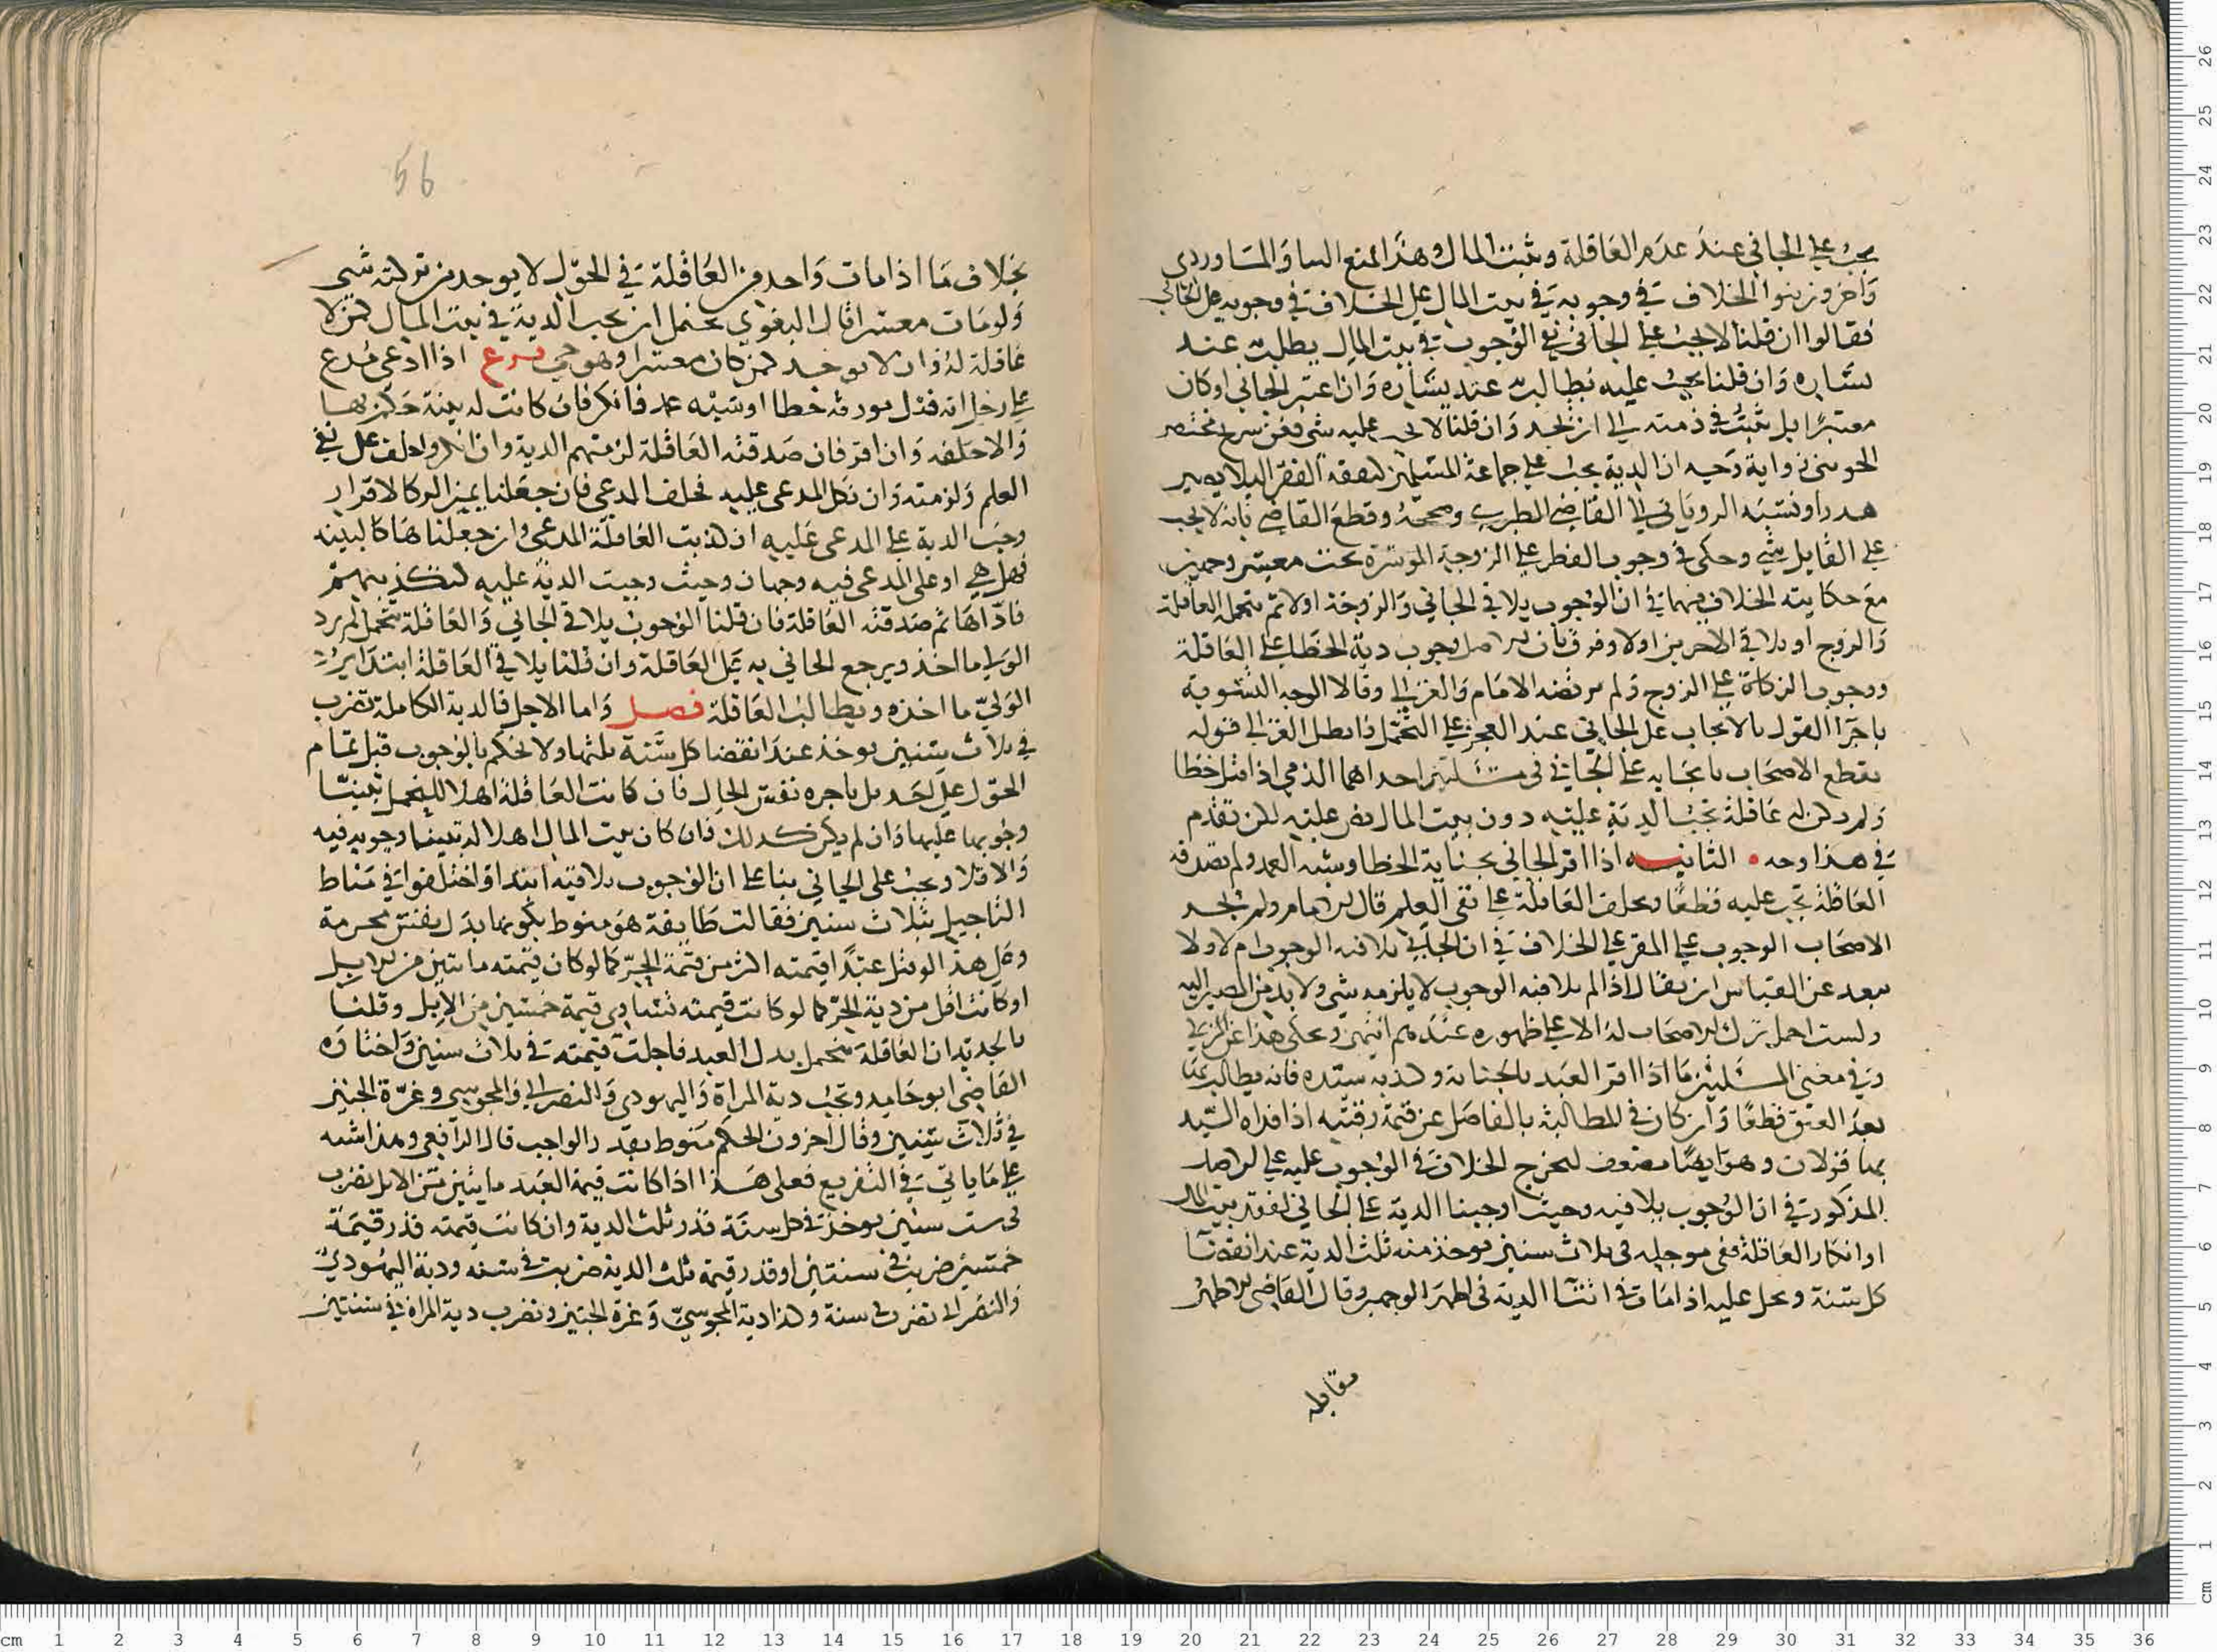 يجب على الجاني عند عدم العاقلة وبيت المال وهذا
وآخرون بنوا الخلاف في وجوبه في بيت المال على الخلاف في وجوبه على الجاني
فقالوا ان قلنا لا يجب على الجاني ففي الوجوب في بيت المال يطلب عند
يساره وان قلنا يجب عليه يطالب به عند يساره وان اعسر الجاني او كان
معسرا بل يثبت في ذمته الى ان يجد وان قلنا لا يجب عليه شي ففي شرح مختصر
الجويني رواية وجه ان الدية تجب على جماعة المسلمين كنفقة الفقير ليلا يصير
هدرا ونسبه الروياني الى القاضي الطبري وصححه وقطع القاضي بانه لا يجب
على القاتل شي وحكى في وجوب الفطر على الزوجة الموسرة تحت معسر وجهين
مع حكايته الخلاف فيهما في ان الوجوب يلاقي الجاني والزوجة اولا ثم تتحمل العاقلة
والزوج او يلاقي الاخرين اولا وفرق بان الاصل وجوب دية الخطا على العاقلة
ووجوب الزكاة على الزوج ولم يرتضه الامام والغزالي وقالا الوجه التسوية
باجرا القول بالايجاب على الجاني عند العجز على التحمل وابطل الغزالي قوله
بقطع الاصحاب بايجابه على الجاني في مسئلتين احداهما الذمي اذا قتل خطا
ولم يكن له عاقلة تجب الدية عليه دون بيت المال نص عليه لكن تقدم
في هذا وجه • الثانيه اذا اقر الجاني بجناية الخطا وشبه العمد ولم تصدقه
العاقلة تجب عليه قطعا وتحلف العاقلة على نفي العلم قال الامام ولم يخرج
الاصحاب الوجوب على المقر على الخلاف في ان الجاني يلاقيه الوجوب ام لا ولا
يبعد عن القياس ان يقال اذا لم يلاقه الوجوب لا يلزمه شي ولا بد من المصير اليه
ولست احمل ترك الاصحاب له الا على ظهوره عندهم انتهى وحكى هذا عن المزني
وفي معنى المسئلتين ما اذا اقر العبد بالجناية وكذبه سيده فانه يطالب بها
بعد العتق قطعا وان كان في المطالبة بالفاضل عن قيمة رقبته اذا فداه السيد
بها قولان وهو ايضا يضعف لتخرج الخلاف في الوجوب عليه على الاصل
المذكور في ان الوجوب يلاقيه وحيث اوجبنا الدية على الجاني لفقد بيت المال
او انكار العاقلة فهي موجله في ثلاث سنين يوخذ منه ثلث الدية عند انقضا
كل سنة وتحل عليه اذا مات في اثنا الدية في اظهر الوجهين وقال القاضي الاظهر
مقابله
56
بخلاف ما اذا مات واحد من العاقلة في الحول لا يوخذ من تركته شي
ولو مات معسرا قال البغوي يحتمل ان تجب الدية في بيت المال كمن لا
عاقلة له وان لا يوخذ كمن كان معسرا وهو حي فرع اذا ادعى مدع
على رجل انه قتل مورثه خطا او شبه عمد فانكر فان كانت له بينة حكم بها
والا حلفه وان اقر فان صدقته العاقلة لزمتهم الدية وان انكروا حلف على نفي
العلم ولزمته وان نكل المدعى عليه فحلف المدعي فان جعلنا يمين الرد كالاقرار
وجبت الدية على المدعى عليه ان كذبت العاقلة المدعي وان جعلناها كالبينه
فهل هي او على المدعى فيه وجهان وحيث وجبت الدية عليه لتكذيبهم
فاداها ثم صدقته العاقلة فان قلنا الوجوب يلاقي الجاني والعاقلة تتحمل لم يرد
الولي ما اخذ ويرجع الجاني به على العاقلة وان قلنا يلاقي العاقلة ابتدا يرد
الولي ما اخذه ويطالب العاقلة فصل واما الاجل فالدية الكاملة تضرب
في ثلاث سنين يوخذ عند انقضا كل سنة ثلثها ولا نحكم بالوجوب قبل تمام
الحول على احد بل باخره نفس الحال فان كانت العاقلة اهلا للتحمل تبينا
وجوبها عليها وان لم يكن كذلك فان كان بيت المال اهلا له تبينا وجوبه فيه
والا فلا وتجب على الجاني بنا على ان الوجوب يلاقيه ابتدا واختلفوا في مناط
التاجيل بثلاث سنين فقالت طايفة هو منوط بكونها بدل نفس محرمة
وعلى هذا لو قتل عبدا قيمته اكثر من قيمة الحر كما لو كان قيمته مايتين من الابل
او كانت اقل من دية الحر كما لو كانت قيمته تساوي قيمة خمسين من الابل وقلنا
بالجديد ان العاقلة تتحمل بدل العبد فاجلت قيمته في ثلاث سنين واختاره
القاضي ابو حامد وتجب دية المراة واليهودي والنصراني والمجوسي وغرة الجنين
في ثلاث سنين وقال اخرون الحكم منوط بقدر الواجب قال الرافعي وهذا اشبه
على ما ياتي في التفريع فعلى هذا اذا كانت قيمة العبد مايتين من الابل تضرب
في ست سنين يوخذ في كل سنة قدر ثلث الدية وان كانت قيمته قدر قيمة
خمسين ضربت في سنتين او قدر قيمة ثلث الدية ضربت في سنه ودية اليهودي
والنصراني تضرب في سنة وكذا دية المجوسي وغرة الجنين وتضرب دية المراة في سنتين